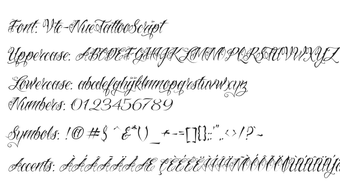 Font: Vtc-NueTattooScript
Uppercase: ABCDEFGHIJKLMNOPQRSTUVWXYZ
Lowercase: abcdefghijklmnopqrstuvwxyz
Numbers: 0123456789
Symbols: !@#$^&*()_+-=[]{};:",.<>!?~
Accents: ÀÁÂÃÄÅÆ ÇÈÉÊË